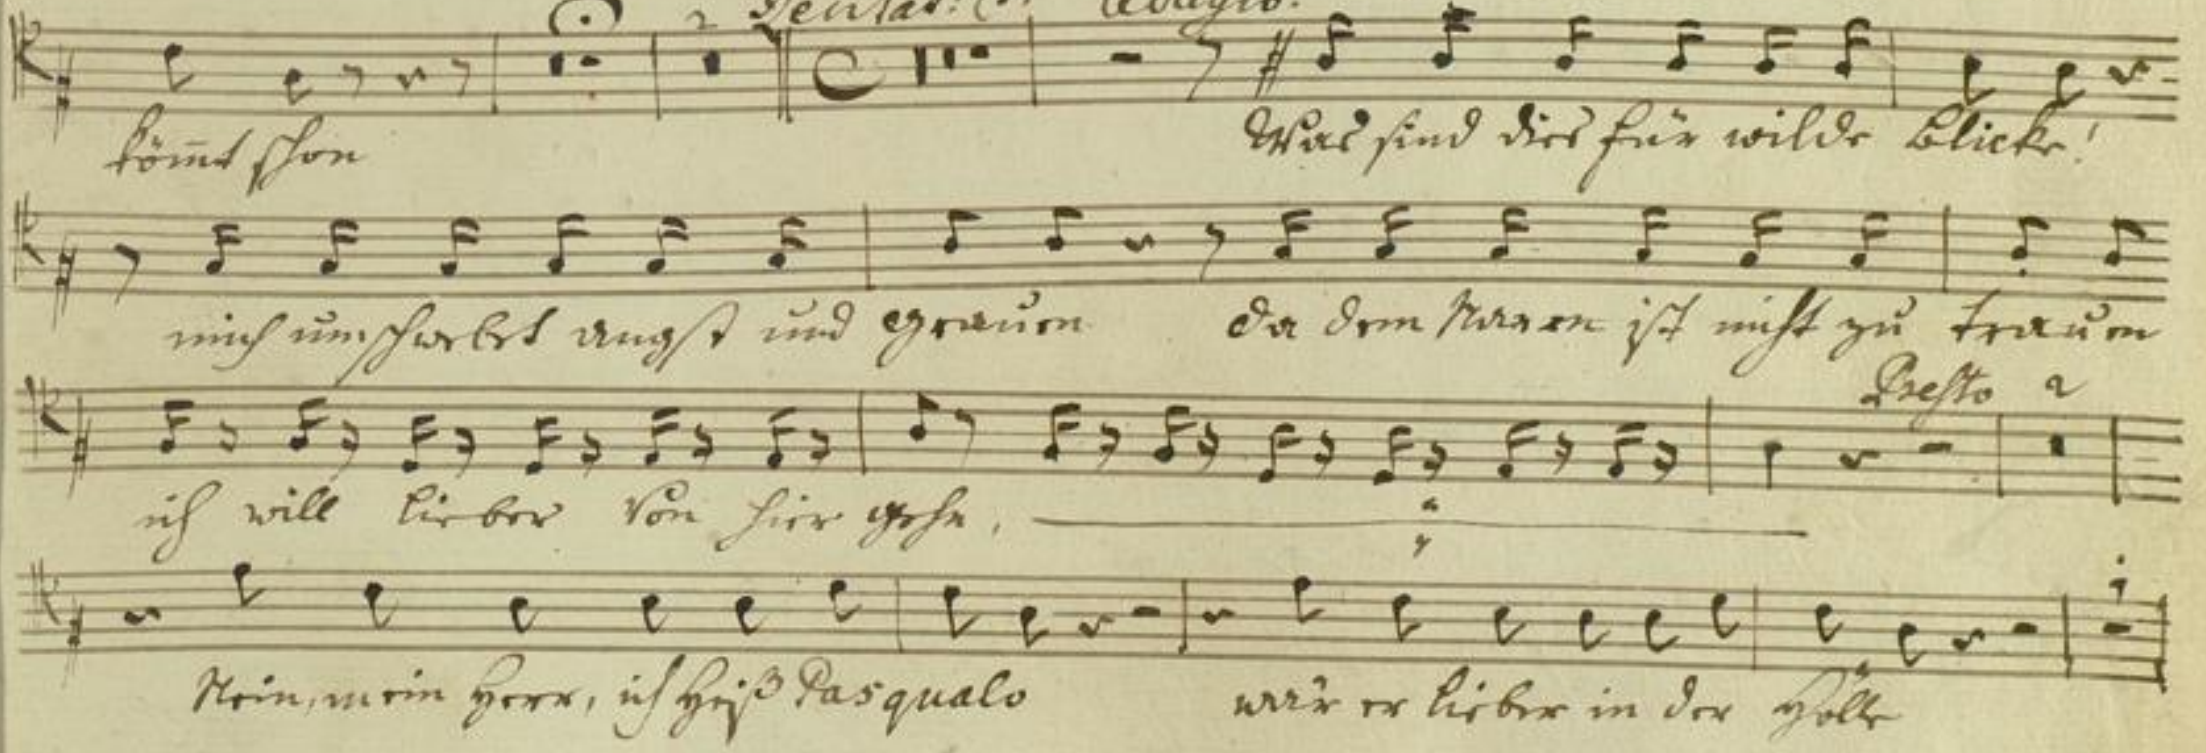 Adagio.
kom̄t schon Was sind dies für wilde Blicke!
mich umschwebet angst und Grauen da dem Narren ist nicht zu trauen
Presto 2
ich will lieber von hier gehn,
Nein, mein Herr, ich heiß Pasqualo wär er lieber in der Hölle